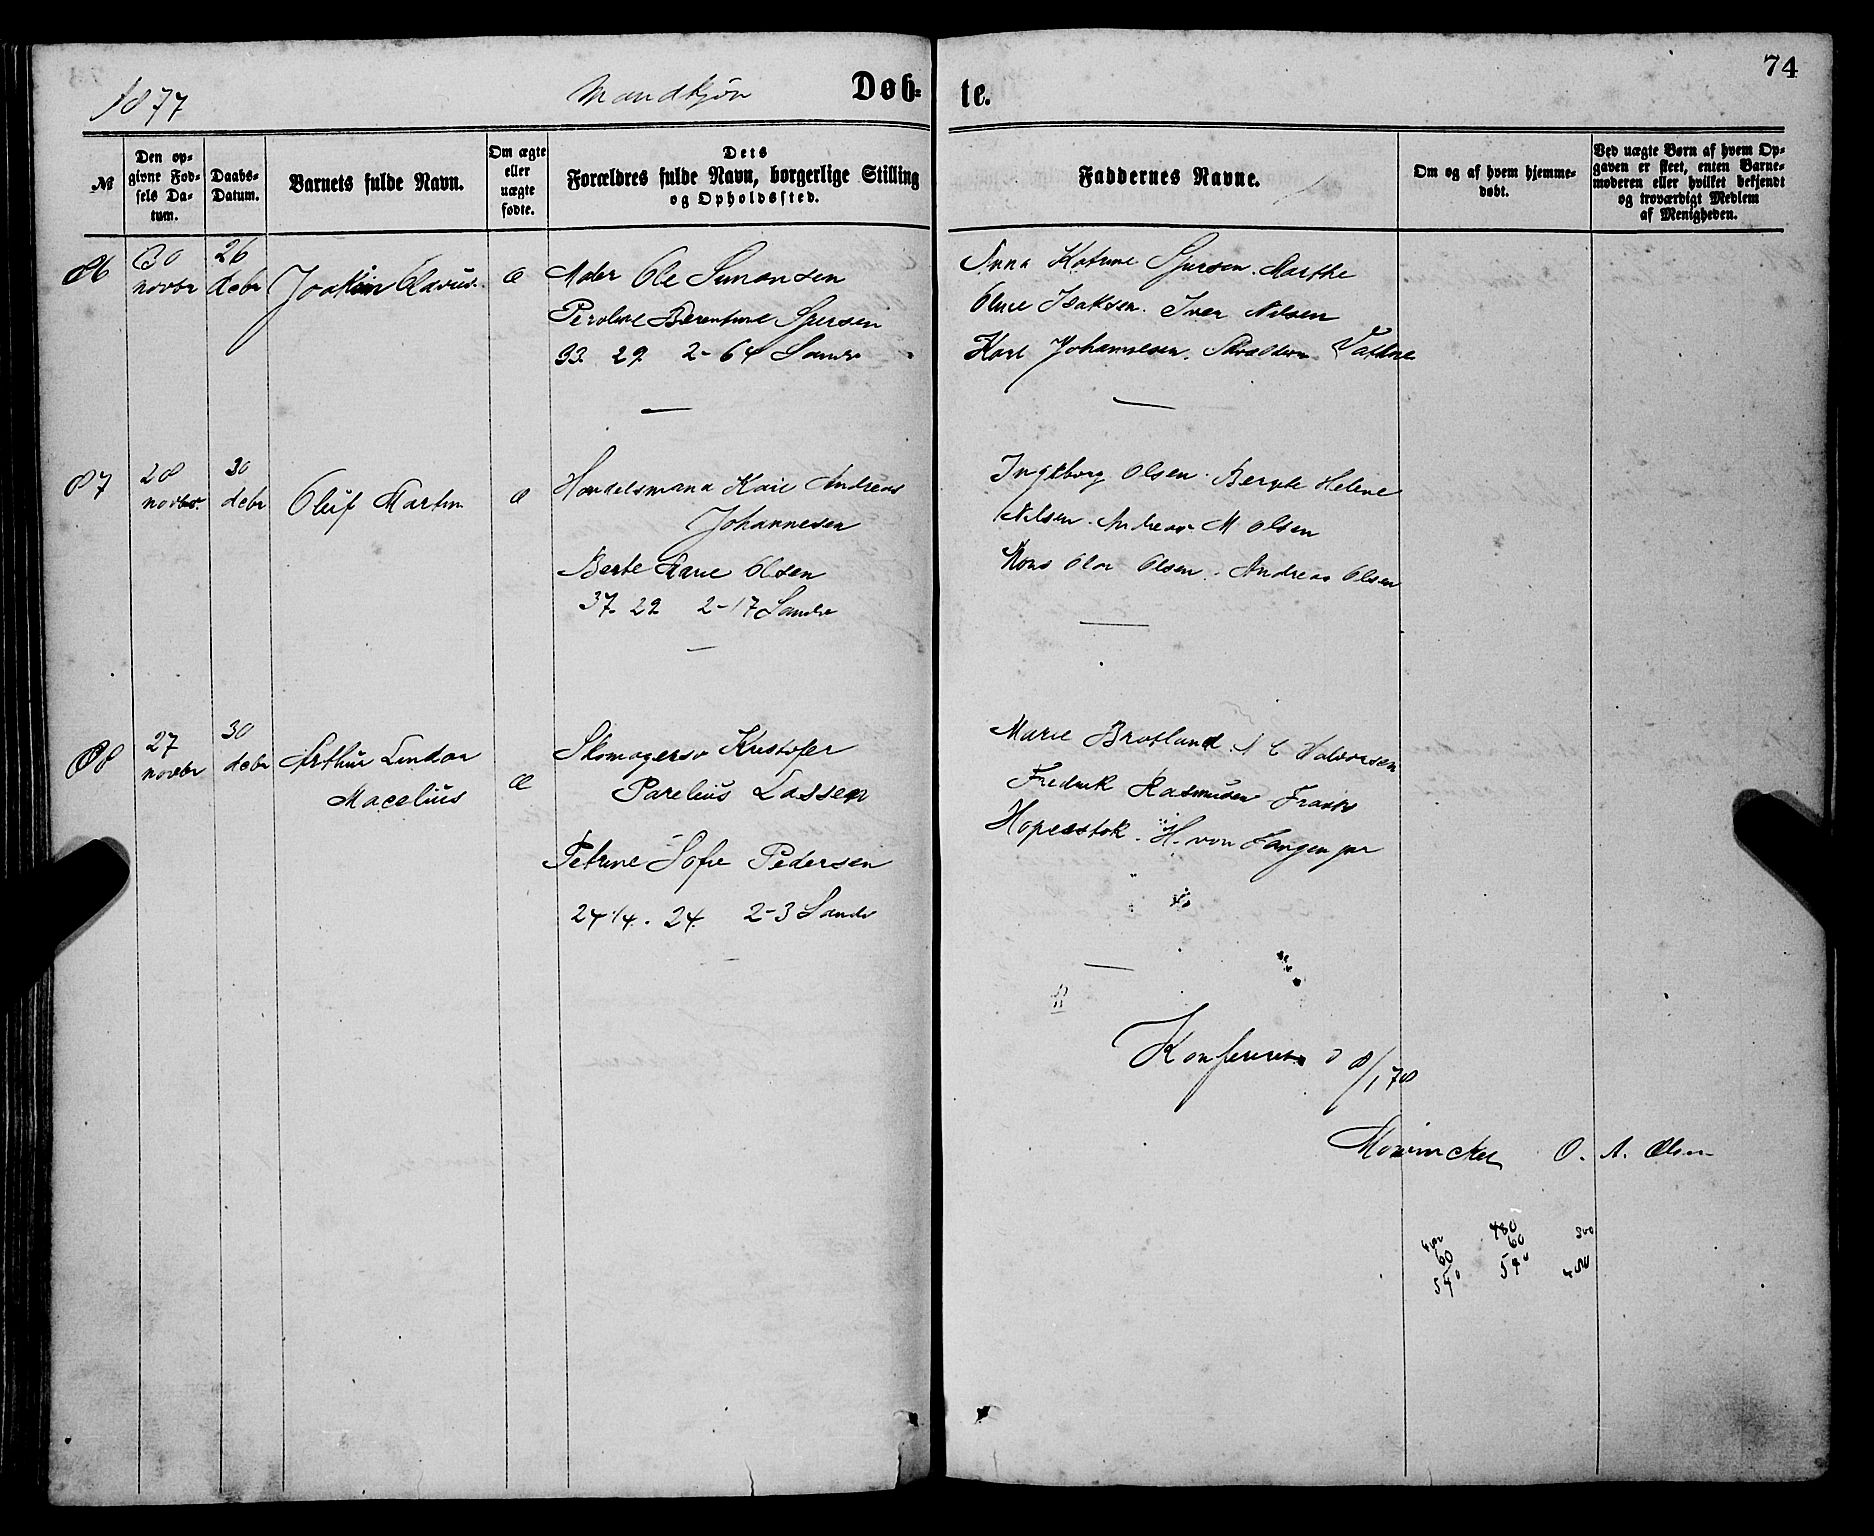 74
1877 Mandkjøn Døb= te.
№
Den op=
givne Fød=
sels Da=
tum.
Daabs=
Datum.
Barnets fulde Navn.
Om ægte
eller
uægte
fødte.
Dets
Forældres fulde Navn, borgerlige Stilling
og Opholdssted.
Faddernes Navne.
Om og af hvem hjemme=
døbt.
Ved uægte Børn af hvem Op=
gaven er skeet, enten Barne=
moderen eller hvilket bekjendt
og troværdigt Medlem
af Menigheden.
86
30
novbr
26
debr
Joakim
æ
Maler Ole Simonsen
Peroline Berentine Sjursen
33. 29. 2-64 Sandv
Anna Katrine Sjursen. Marthe
Oline Isaksen. Iver Nilsen
Karl Johannesen. Vatne
87
28
novbr.
30
debr
Oluf Martin
æ
Handelsmand Andreas
Johannesen
Berte Marie Olsen
37. 29 2-17 Sandv
Ingeborg Olsen. Bergte Helene
Nilsen. Andreas M Olsen
Hans Olai Olsen. Andreas Olsen
88
27
novbr
30
debr
Arthur Lindar
Macelius
æ
Skomagersv Kristofer
Parelius Lassen
Petrine Sofie Pedersen
24 1/4. 24. 2-3 Sandv
Marie Bratland. Halvorsen
Fredrik Rasmusen Frants
Hopestok. H. von Tangen jnr
Konfereret d 8/1 78
Mowinckel O. A. Olsen
480
60 60
540 540